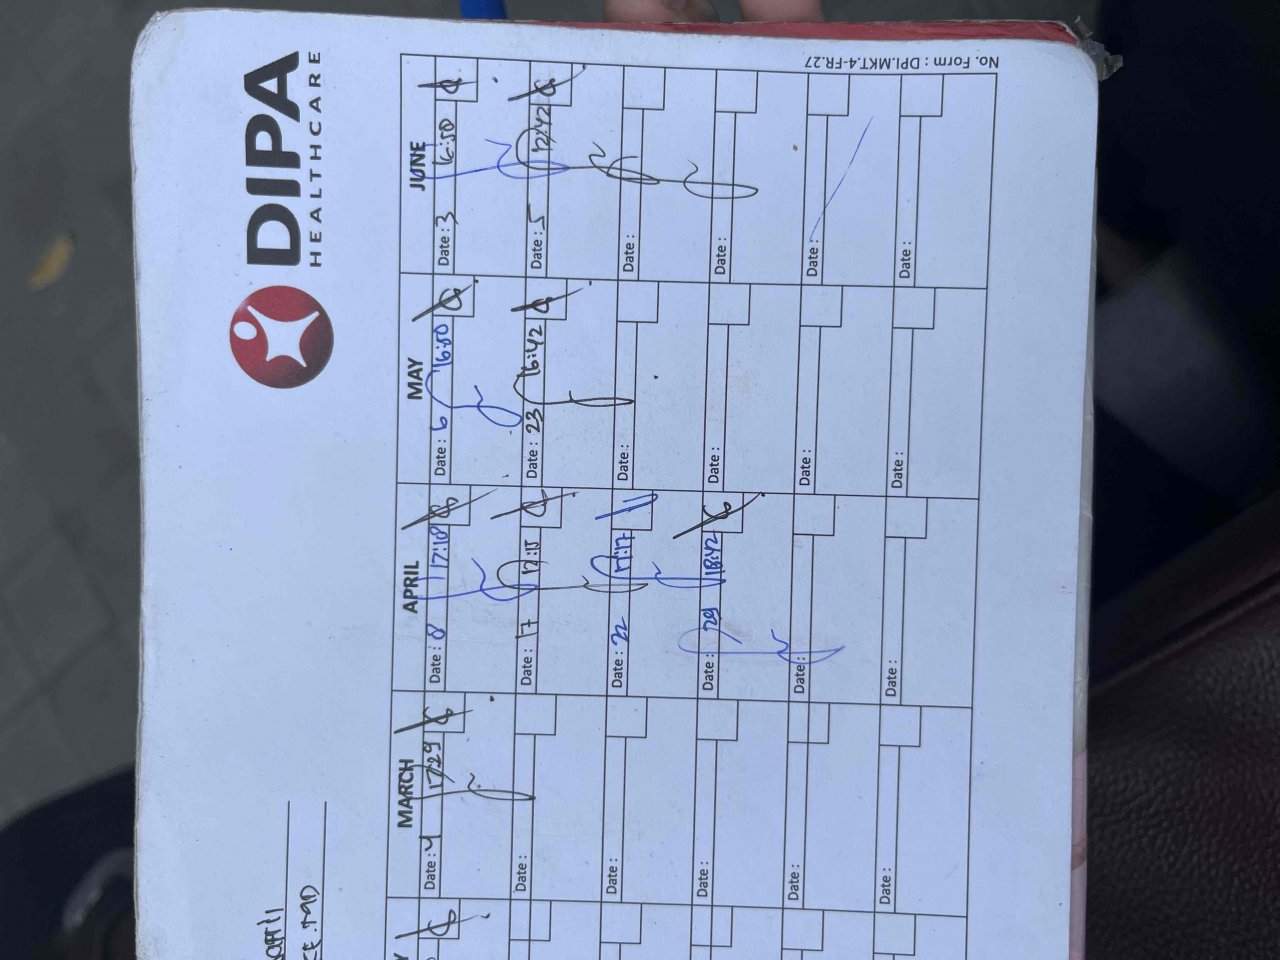 DIPA
HEALTHCARE
MARCH
APRIL
MAY
JUNE
Date : 4 17:29
Date : 8 17:18
Date : 6 16:50
Date : 3 16:50
Date :
Date : 17
Date : 23 16:42
Date : 5 12:42
Date :
Date : 22 17:17
Date :
Date :
Date :
Date : 29 18:42
Date :
Date :
Date :
Date :
Date :
Date :
Date :
Date :
Date :
Date :
No. Form : DPI.MKT.4-FR.27